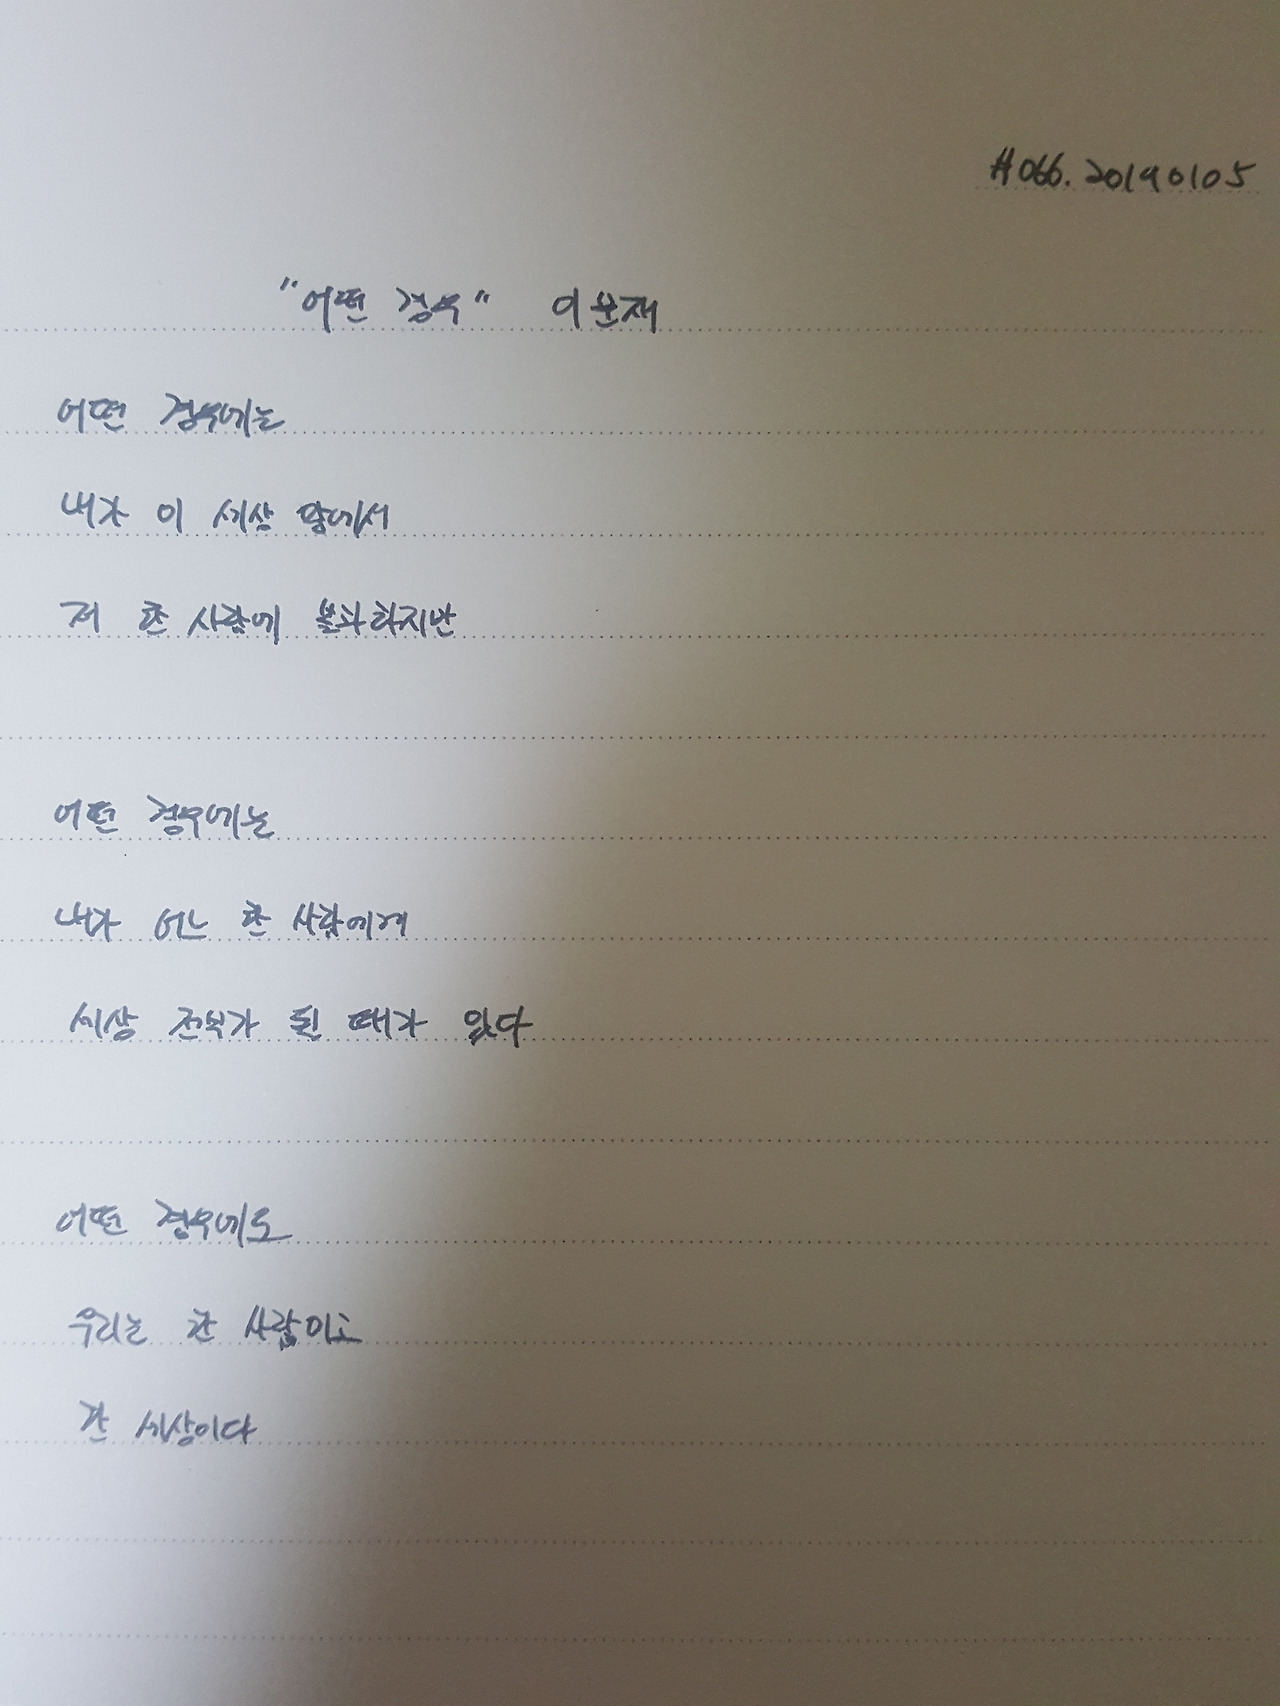 #066. 20190105
"어떤 경우" 이문재
어떤 경우에는
내가 이 세상 앞에서
저 한 사람에 불과하지만
어떤 경우에는
내가 어느 한 사람에게
세상 전부가 될 때가 있다
어떤 경우에도
우리는 한 사람이고
한 세상이다